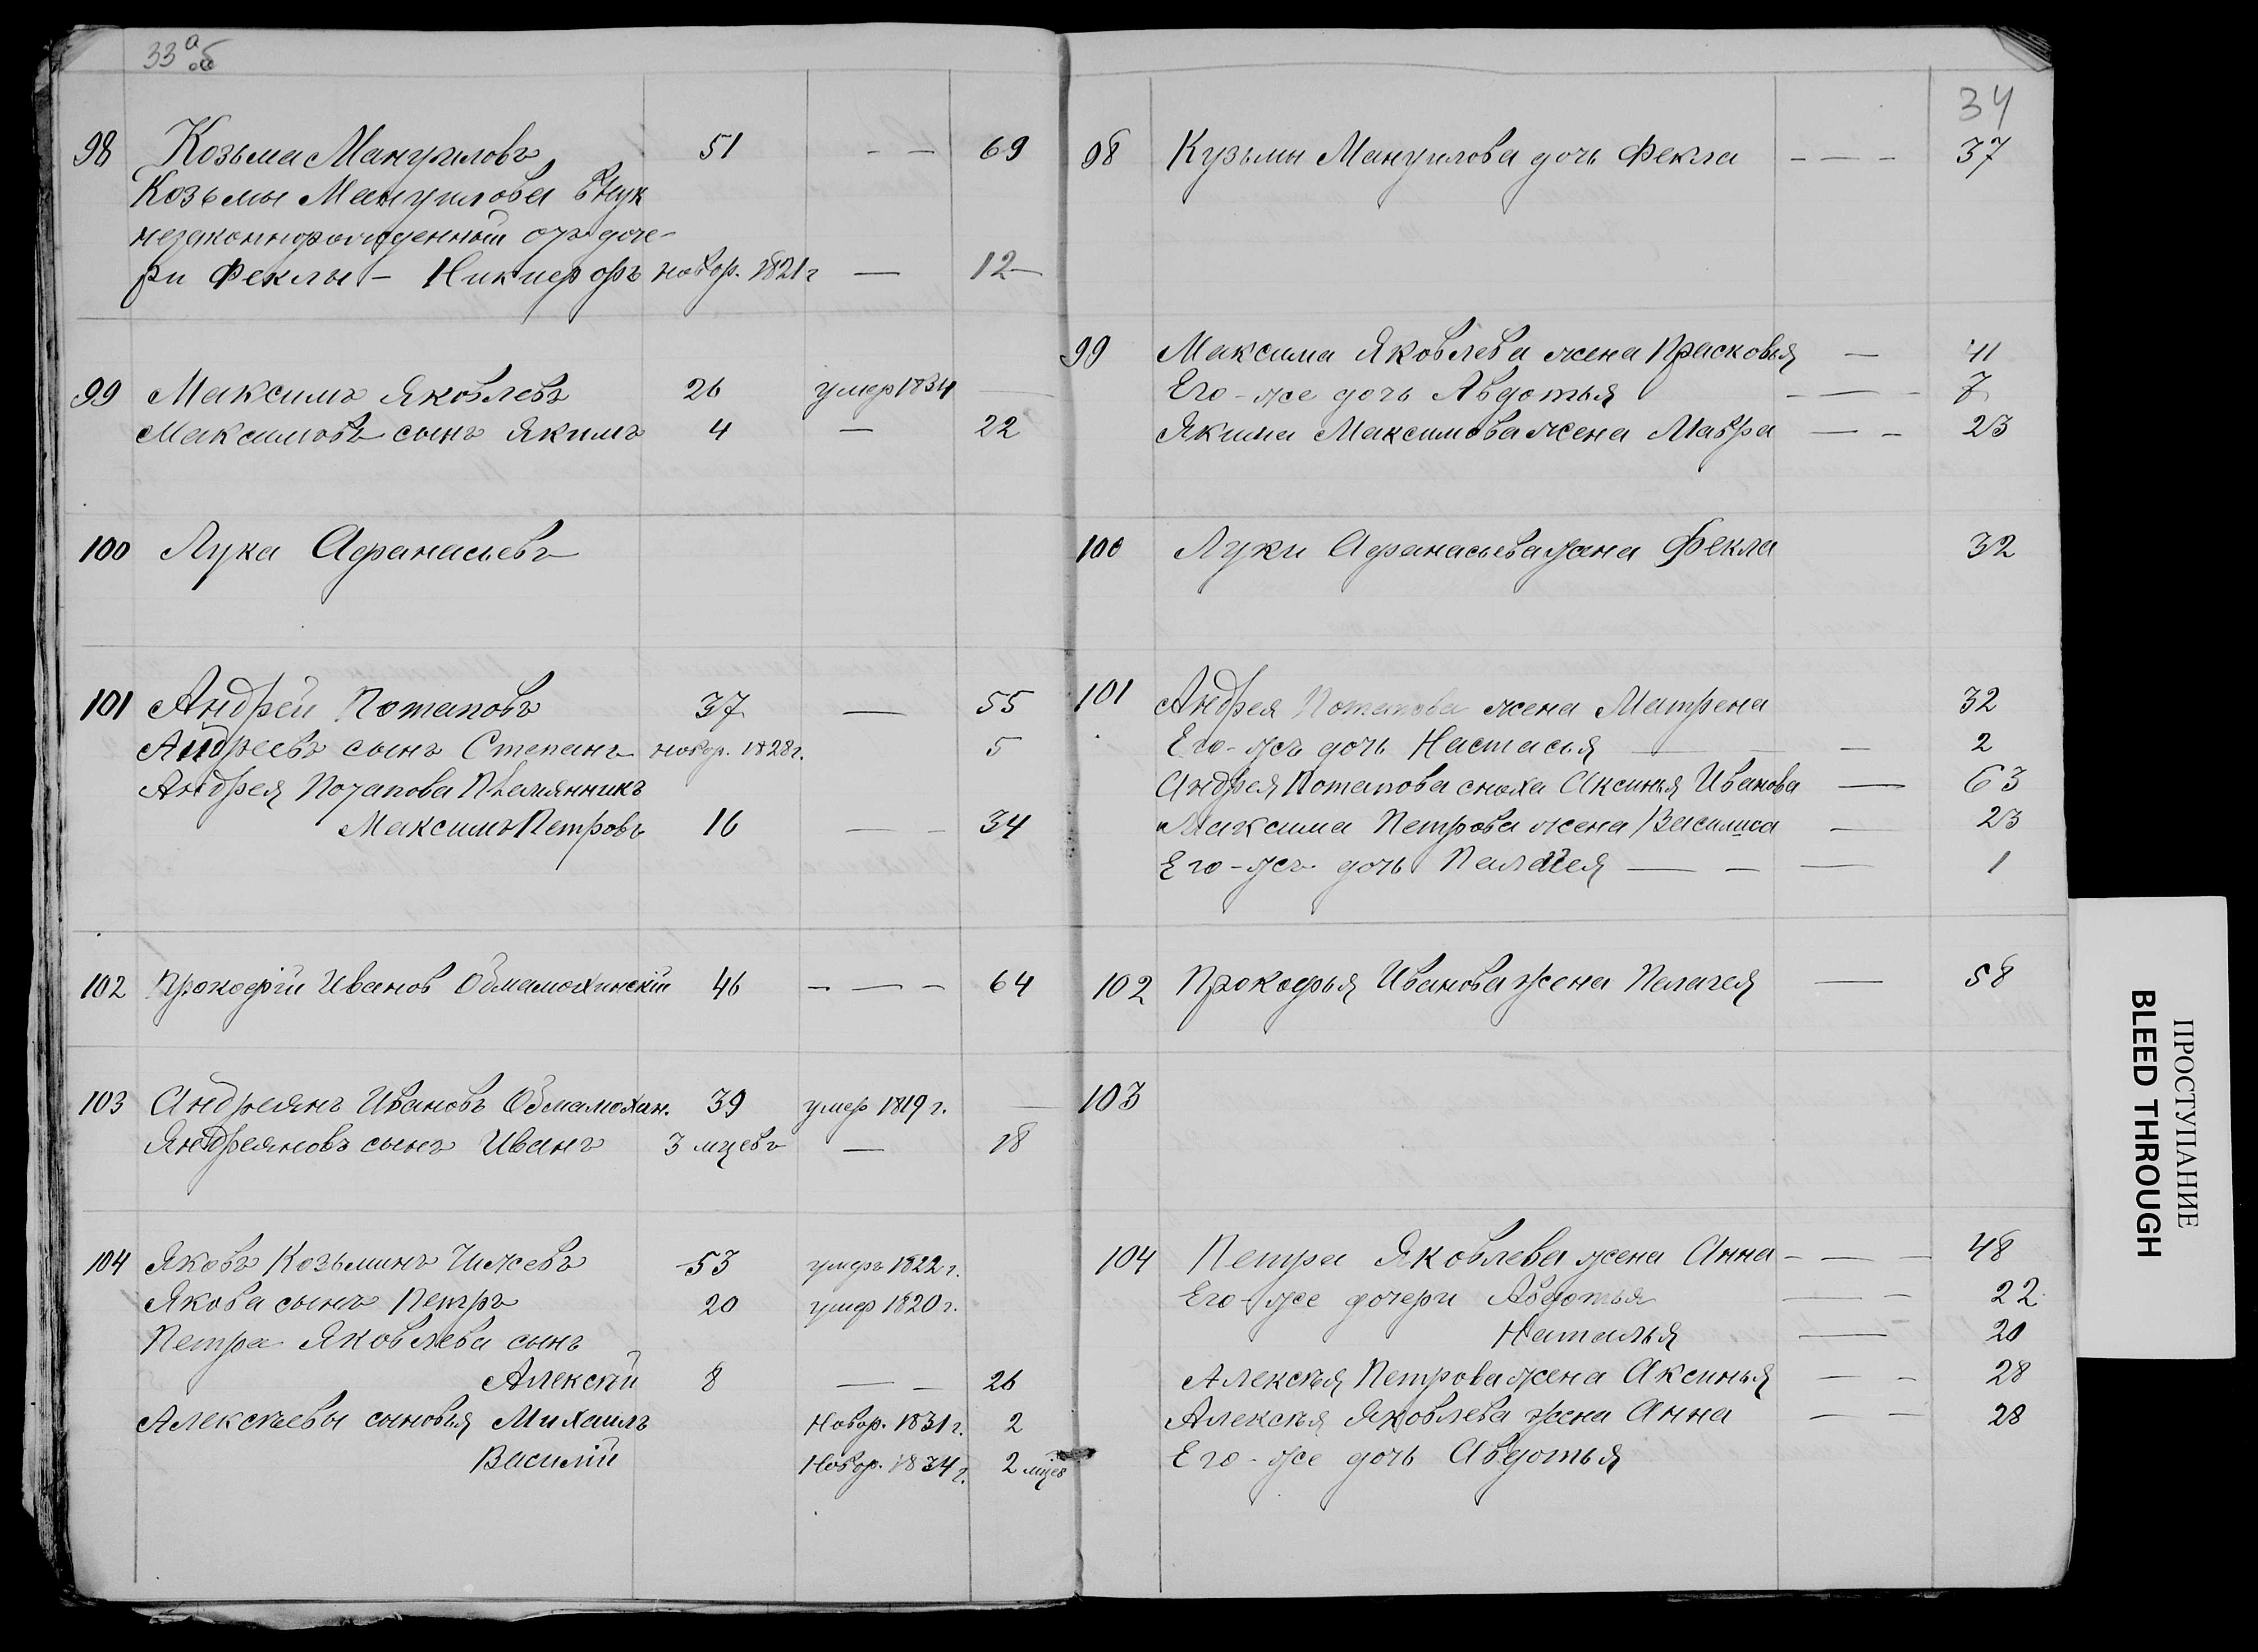 33 а об
98 Козьма Мануиловъ 51 - — 69
Козьмы Мануилова внук
незаконнорожденный отъ доче-
ри Феклы - Никифоръ новор. 1821 г — 12 —
99 Максимъ Яковлевъ 26 умер 1834 —
Максимовъ сынъ Якимъ 4 — 22
100 Лука Афанасьевъ
101 Андрей Потаповъ 37 — 55
Андреевъ сынъ Степанъ новор. 1828 г. 5
Андрея Потапова племянникъ
Максимъ Петровъ 16 — - 34
102 Прокофій Иванов 46 - — - 64
103 Андреянъ Ивановъ 39 умер 1819 г. —
Андреяновъ сынъ Иванъ 3 мцевъ — 18
104 Яковъ Козьминъ Чижевъ 53 умеръ 1822 г.
Якова сынъ Петръ 20 умер 1820 г.
Петра Яковлева сынъ
Алексѣй 8 — - 26
Алексѣевы сыновья Михаилъ Новор. 1831 г. 2
Василій Новор. 1834 г. 2 мцев
34
98 Кузьмы Мануилова дочь Фекла - — - 37
99 Максима Яковлева жена Прасковья — 41
Его-же дочь Авдотья - — - 7
Якима Максимова жена Мавра — - 23
100 Луки Афанасьева жена Фекла 32
101 Андрея Потапова жена Матрена 32
Его-жъ дочь Настасья — - — 2
Андрея Потапова сноха Аксинья Иванова — 63
Максима Петрова жена Василиса - 23
Его-жъ дочь Палагея — - — 1
102 Прокофья Иванова жена Пелагея — 58
103
104 Петра Яковлева жена Анна - — — 48
Его-же дочери Авдотья — - 22
Наталья — 20
Алексѣя Петрова жена Аксинья — - 28
Алексѣя Яковлева жена Анна — — 28
Его-же дочь Авдотья
ПРОСТУПАНИЕ
BLEED THROUGH